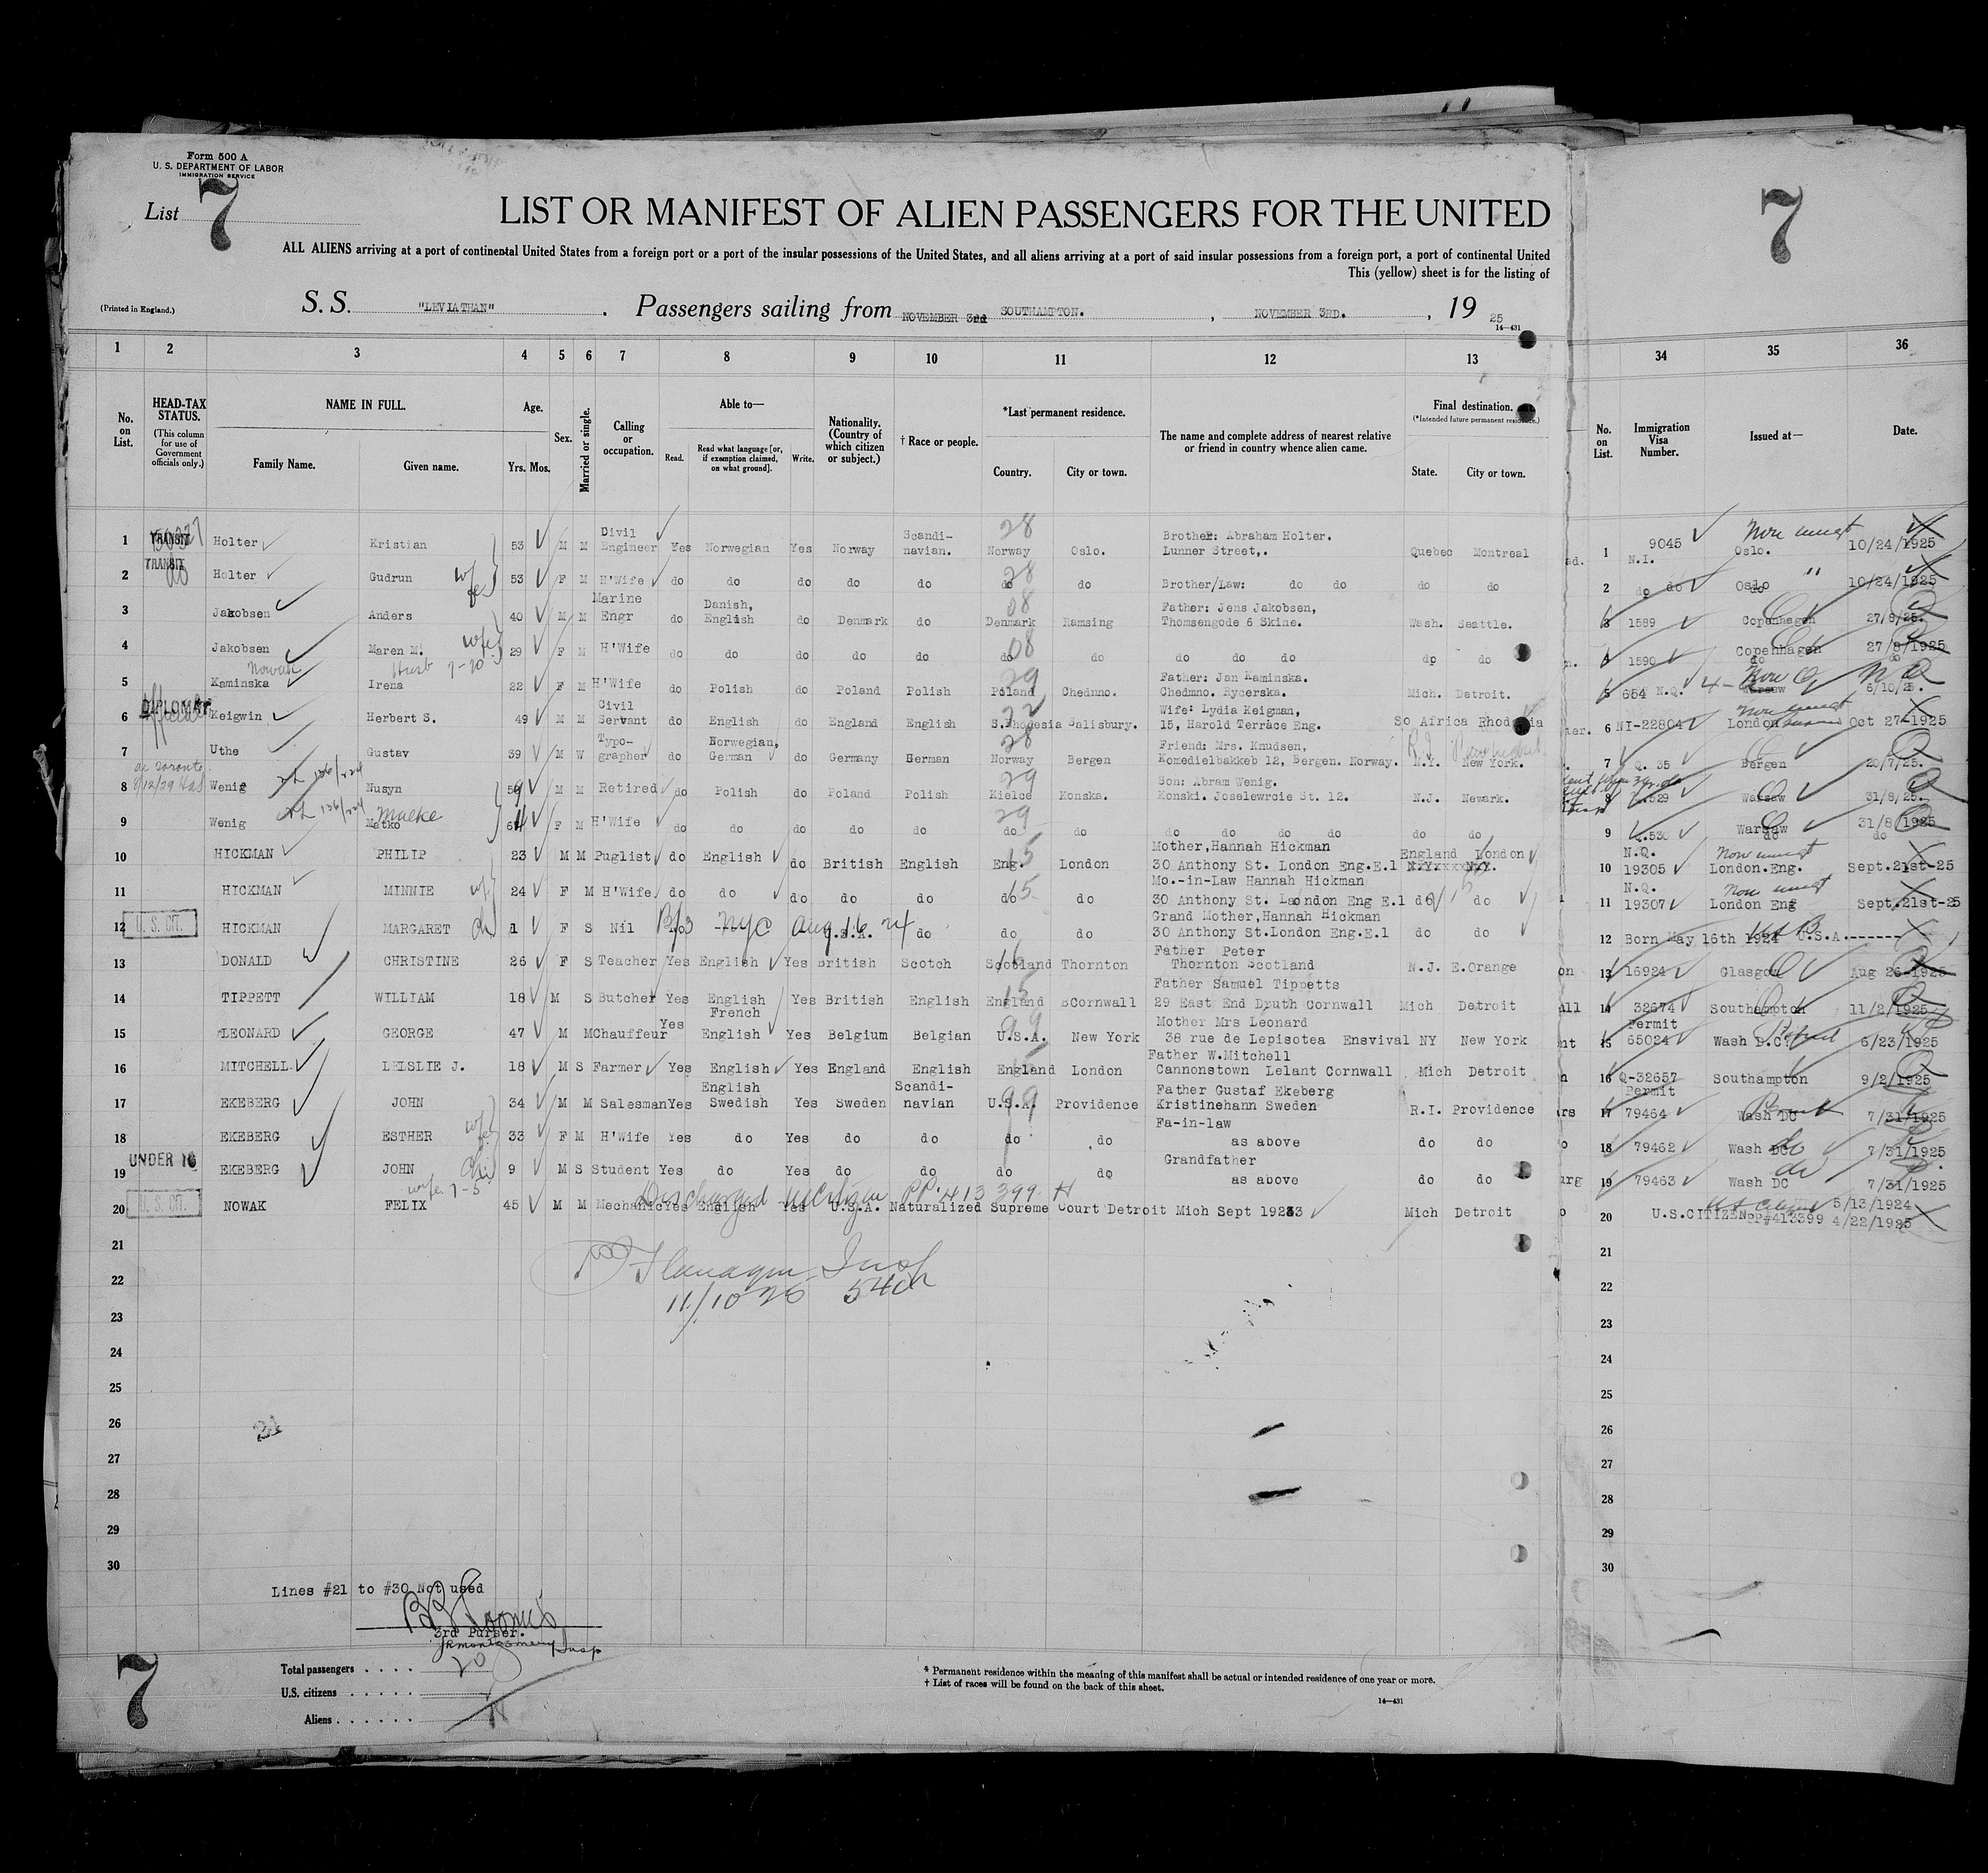 Form 500 A
U. S. DEPARTMENT OF LABOR
IMMIGRATION SERVICE
List 7
LIST OR MANIFEST OF ALIEN PASSENGERS FOR THE UNITED
7
ALL ALIENS arriving at a port of continental United States from a foreign port or a port of the insular possessions of the United States, and all aliens arriving at a port of said insular possessions from a foreign port, a port of continental United
This (yellow) sheet is for the listing of
(Printed in England.)
S. S. "LEVIATHAN". Passengers sailing from NOVEMBER 3rd SOUTHAMPTON. , NOVEMBER 3RD. , 19 25
14—431
1 2 3 4 5 6 7 8 9 10 11 12 13 34 35 36
No. on List.
HEAD-TAX STATUS. (This column for use of Government officials only.)
NAME IN FULL.
Family Name. Given name.
Age. Yrs. Mos.
Sex.
Married or single.
Calling or occupation.
Able to—
Read. Read what language [or, if exemption claimed, on what ground]. Write.
Nationality. (Country of which citizen or subject.)
† Race or people.
*Last permanent residence.
Country. City or town.
The name and complete address of nearest relative or friend in country whence alien came.
Final destination. (*Intended future permanent residence.)
State. City or town.
No. on List.
Immigration Visa Number.
Issued at—
Date.
1 TRANSIT Holter Kristian 53 M M Civil Engineer Yes Norwegian Yes Norway Scandi-navian. 28 Norway Oslo. Brother: Abraham Holter. Lunner Street,. Quebec Montreal 1 9045 N.I. Oslo. 10/24/1925
2 TRANSIT do Holter Gudrun wfe 53 F M H'Wife do do do do do 28 do do Brother/Law: do do do do 2 do do Oslo do " 10/24/1925
3 Jakobsen Anders 40 M M Marine Engr do Danish, English do Denmark do 08 Denmark Ramsing Father: Jens Jakobsen, Thomsengode 6 Skine. Wash. Seattle. 3 1589 Copenhagen 27/8/25.
4 Jakobsen Maren M. wfe 29 F M H'Wife do do do do do 08 do do do do do do do 4 1590 Copenhagen do 27/8/1925 do
5 Nowak Kaminska Irena Husb 7-20 22 F M H'Wife do Polish do Poland Polish 29 Poland Chedmno. Father: Jan Kaminska. Chedmno. Rycerska. Mich. Detroit. 5 654 N.Q. Warsaw 6/10/25.
6 DIPLOMAT Keigwin Herbert S. 49 M M Civil Servant do English do England English 22 S.Rhodesia Salisbury. Wife: Lydia Keigman, 15, Harold Terrace Eng. So Africa Rhodesia 6 NI-22804 London Oct 27-1925
7 Uthe Gustav 39 M W Typo-grapher do Norwegian, German do Germany German 28 Norway Bergen Friend: Mrs. Knudsen, Komedielbakkeb 12, Bergen. Norway. N.Y. New York. 7 Q. 35 Bergen 20/7/25.
8 Wenig Nusyn 59 M M Retired do Polish do Poland Polish 29 Kielce Konska. Son: Abram Wenig. Konski. Joselewrcie St. 12. N.J. Newark. 8 Q.529 Warsaw 31/8/25.
9 Wenig Matko Malke F M H'Wife do do do do do 29 do do do do do do do do 9 Q.530 Warsaw do 31/8/1925 do
10 HICKMAN PHILIP 23 M M Puglist do English do British English 15 Eng. London Mother,Hannah Hickman 30 Anthony St. London Eng.E.1 England London 10 N.Q. 19305 London.Eng. Sept.21st-25
11 HICKMAN MINNIE wf 24 F M H'Wife do do do do do 15 do do Mo.-in-Law Hannah Hickman 30 Anthony St. London Eng E.1 do do 11 N.Q. 19307 London Eng Sept.21st-25
12 U. S. CIT. HICKMAN MARGARET 1 F S Nil NYC Aug. 16 24 U.S.A. do do do Grand Mother,Hannah Hickman 30 Anthony St.London Eng.E.1 do do 12 Born May 16th 1924 U.S.A.-------
13 DONALD CHRISTINE 26 F S Teacher Yes English Yes British Scotch 16 Scotland Thornton Father Peter Thornton Scotland N.J. E.Orange 13 16924 Glasgow Aug 26-1925
14 TIPPETT WILLIAM 18 M S Butcher Yes English Yes British English 15 England BCornwall Father Samuel Tippetts 29 East End Druth Cornwall Mich Detroit 14 32674 Southampton 11/2/1925
15 LEONARD GEORGE 47 M M Chauffeur Yes French English Yes Belgium Belgian 99 U.S.A. New York Mother Mrs Leonard 38 rue de Lepisotea Ensvival NY New York 15 Permit 65024 Wash D.C. 6/23/1925
16 MITCHELL. LELSLIE J. 18 M S Farmer Yes English Yes England English 15 England London Father W.Mitchell Cannonstown Lelant Cornwall Mich Detroit 16 Q-32657 Southampton 9/2/1925
17 EKEBERG JOHN 34 M M Salesman Yes English Swedish Yes Sweden Scandi-navian 99 U.S.A. Providence Father Gustaf Ekeberg Kristinehann Sweden R.I. Providence 17 Permit 79464 Wash DC 7/31/1925
18 EKEBERG ESTHER wfe 33 F M H'Wife Yes do Yes do do do do Fa-in-law as above do do 18 79462 Wash DC 7/31/1925
19 UNDER 16 EKEBERG JOHN 9 M S Student Yes do Yes do do do do Grandfather as above do do 19 79463 Wash DC do 7/31/1925
20 U. S. CIT. NOWAK FELIX wfe 7-5 45 M M Mechanic Yes English Yes U.S.A. Naturalized Supreme Court Detroit Mich Sept 1923 Mich Detroit 20 U.S.CITIZEN PP#413399 5/13/1924 4/22/1925
Discharged US Citizen PP. 413 399
21 21
22 Flanagan Insp 22
11/10 25
23 23
24 24
25 25
26 26
27 27
28 28
29 29
30 30
Lines #21 to #30 Not used
3rd Purser.
JRMontgomery Insp
7
Total passengers . . . . 20
U.S. citizens . . . . .
Aliens . . . . . .
* Permanent residence within the meaning of this manifest shall be actual or intended residence of one year or more.
† List of races will be found on the back of this sheet.
14—431